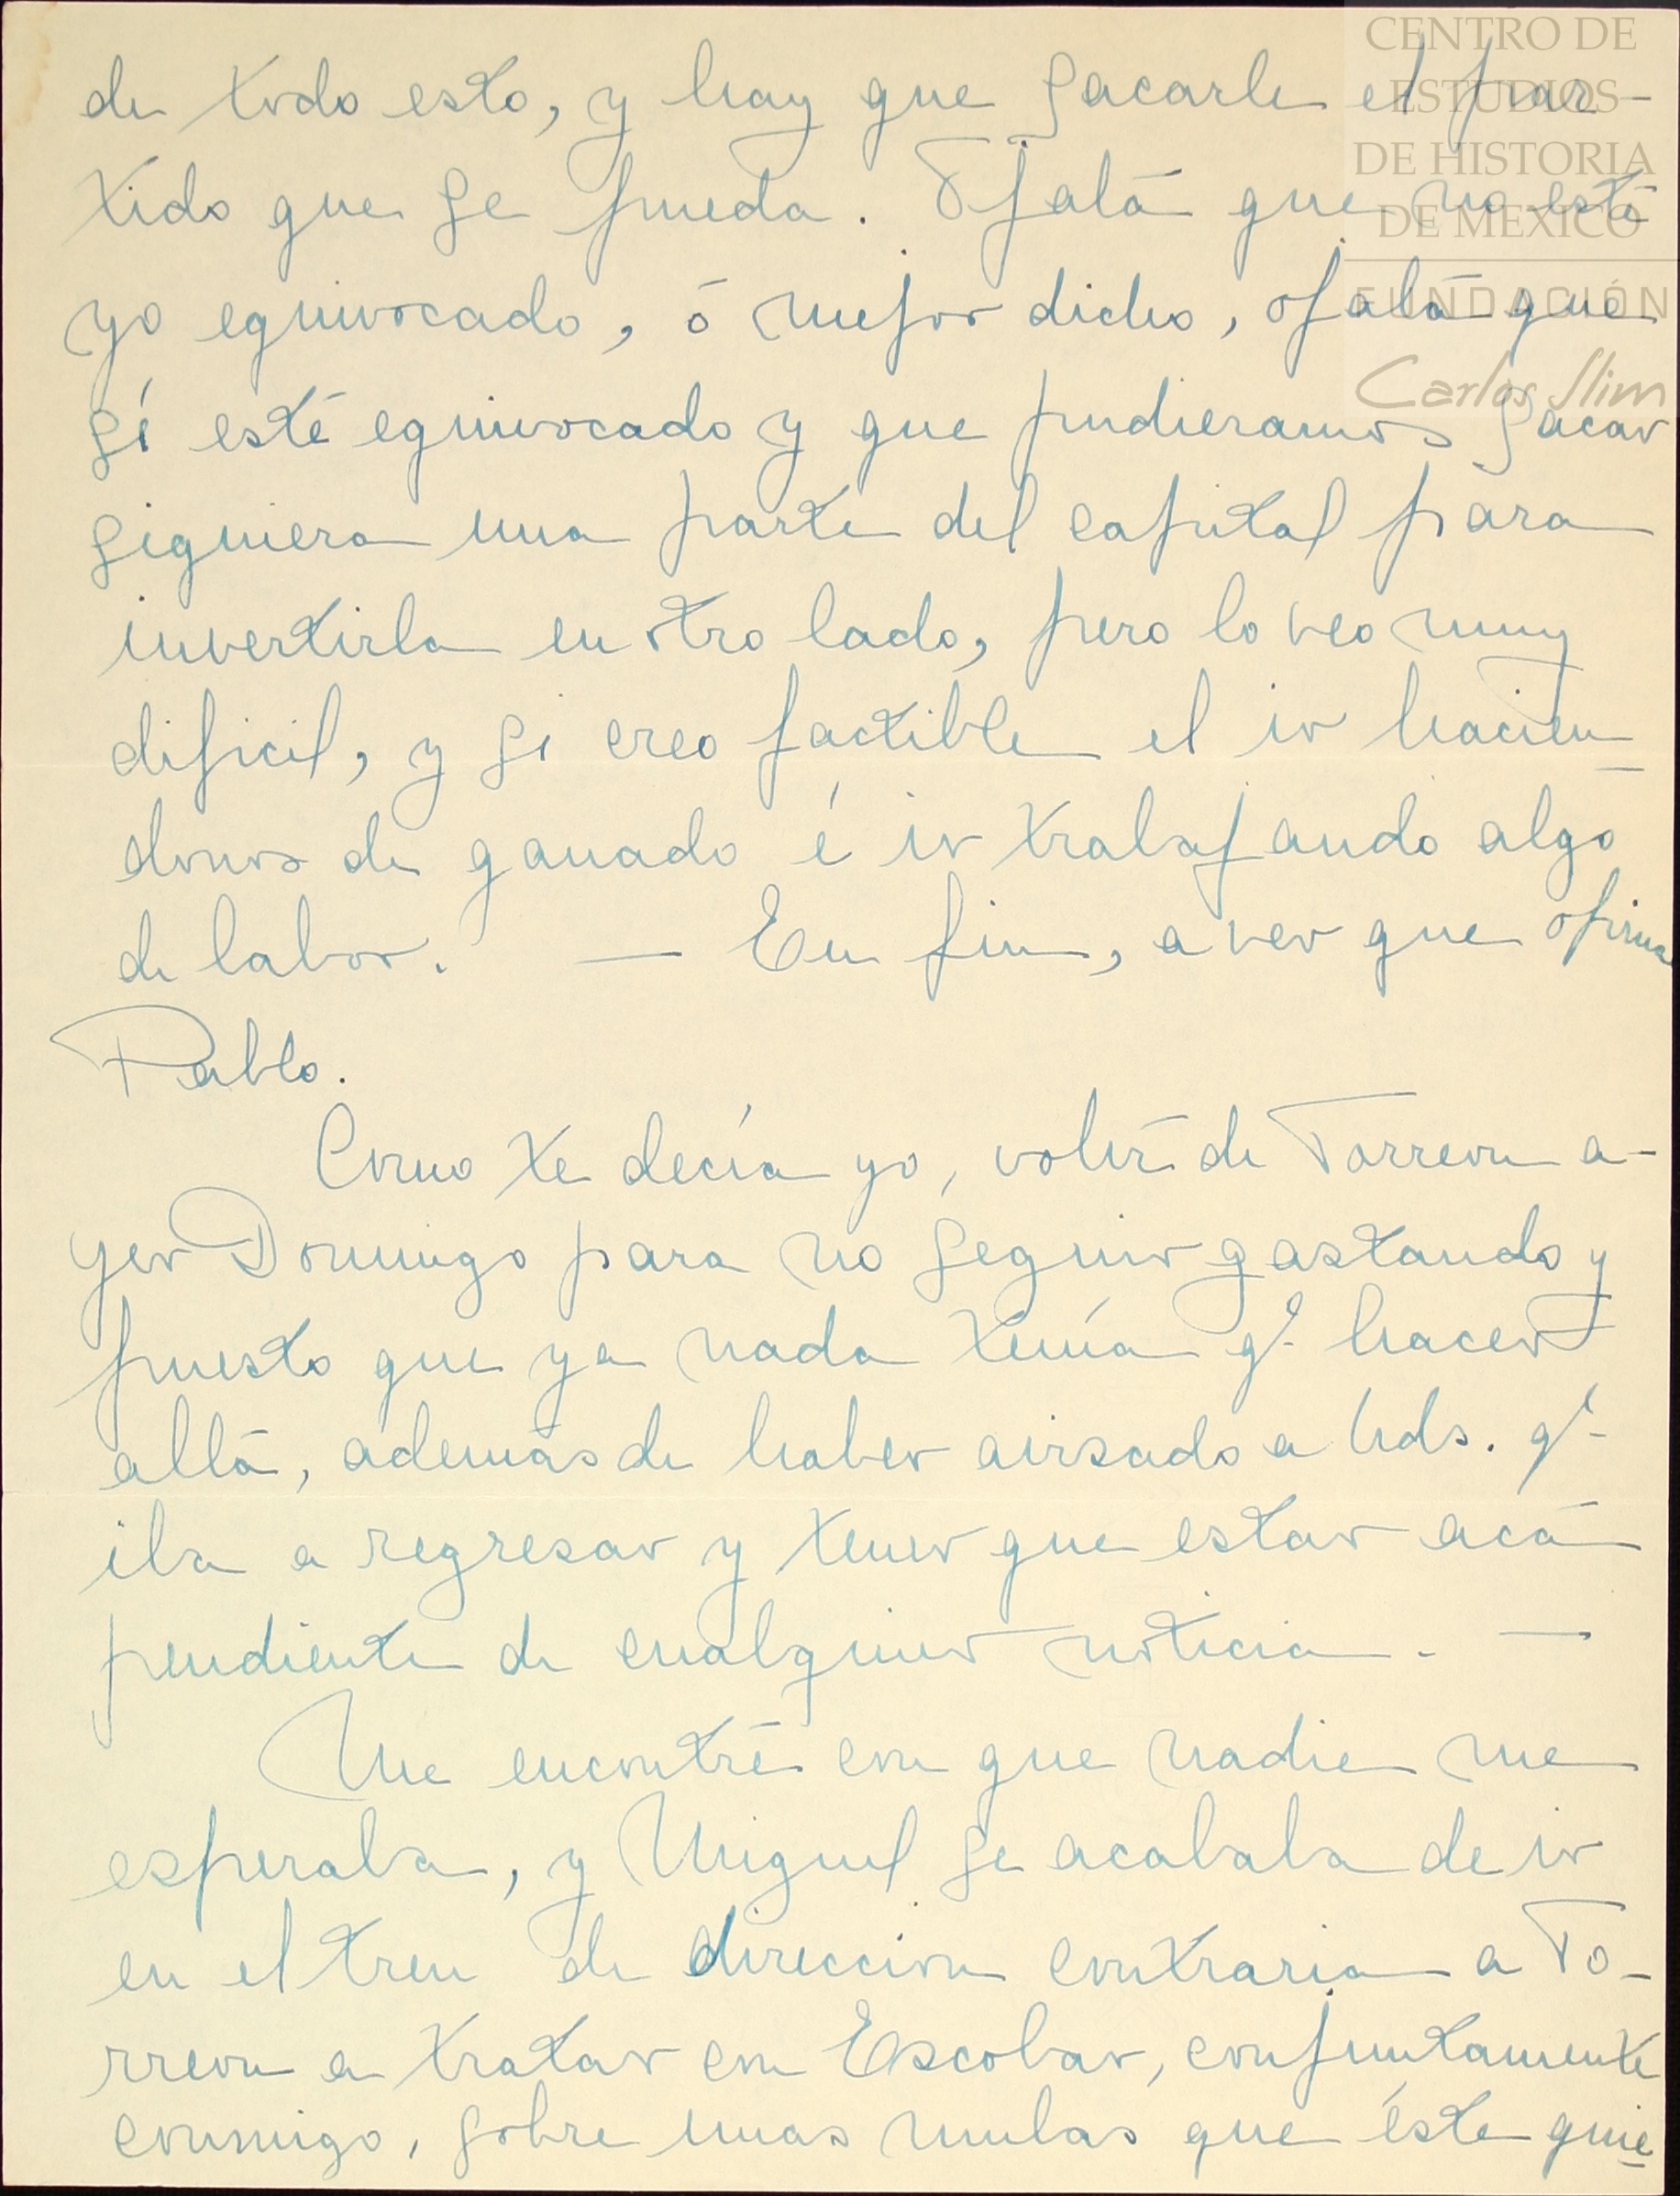 CENTRO DE
ESTUDIOS
DE HISTORIA
DE MEXICO
FUNDACIÓN
Carlos Slim
de todo esto, y hay que sacarle el par-
tido que se pueda. Ojalá que no esté
yo equivocado, ó mejor dicho, ojalá que
sí esté equivocado y que pudieramos sacar
siquiera una parte del capital para
invertirla en otro lado, pero lo veo muy
dificil, y si creo factible el ir hacien-
donos de ganado é ir trabajando algo
de labor. — En fin, a ver que opina
Pablo.
Como te decía yo, volví de Torreon a-
yer Domingo para no seguir gastando y
puesto que ya nada tenía q.e hacer
allá, además de haber avisado a Uds. q.e
iba a regresar y tener que estar acá
pendiente de cualquier noticia. —
Me encontré con que nadie me
esperaba, y Miguel se acababa de ir
en el tren de direccion contraria a To-
rreon a tratar con Escobar, conjuntamente
conmigo, sobre unas mulas que éste quie